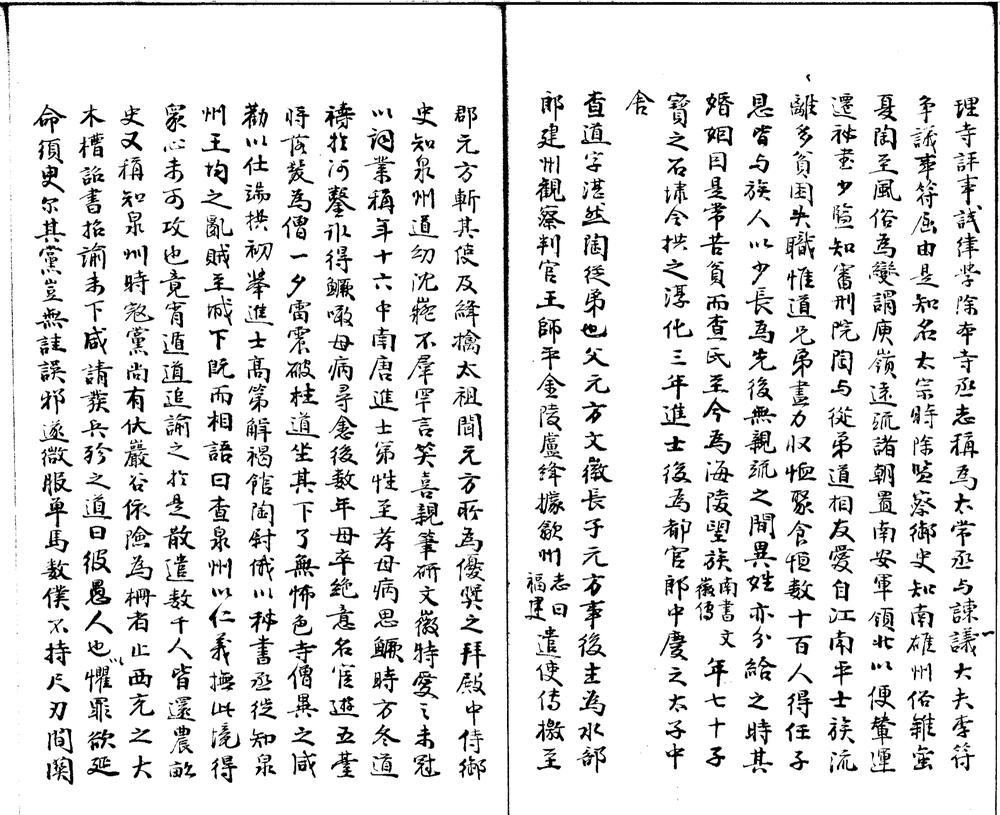 理寺評事試律學除本寺丞志稱為太常丞与諫議大夫李符
争議事符屈由是知名太宗時除監察御史知南雄州俗雜蛮
夏陶至風俗為變謂庾嶺遠疏諸朝置南安軍領北以便輦運
遷祕書少監知審刑院陶与從弟道相友愛自江南平士族流
離多貧困失職惟道兄弟盡力收恤聚食恒数十百人得任子
恩皆与族人以少長為先後無親疏之間異姓亦分給之時其
婚姻因是常苦貧而查氏至今為海陵望族南書文徽傳年七十子
寶之石埭令拱之淳化三年進士後為都官郎中慶之太子中
舍
查道字湛然陶從弟也父元方文徽長子元方事後主為水部
郎建州觀察判官王師平金陵盧絳據歙州志曰福建遣使傳檄至
郡元方斬其使及絳擒太祖聞元方所為優奬之拜殿中侍御
史知泉州道幼沈嶷不羣罕言笑喜親筆研文徽特愛之未冠
以词業稱年十六中南唐進士第性至孝母病思鱖時方冬道
禱於河鑿氷得鱖噉母病尋愈後数年母卒絶意名宦遊五臺
将落髮為僧一夕雷震破柱道坐其下了無怖色寺僧異之咸
勸以仕端拱初舉進士高第解褐館陶尉俄以秘書丞從知泉
州王均之亂賊至城下既而相語曰查泉州以仁義撫此境得
衆心未可攻也竟宵遁道追諭之於是散遣数千人皆還農畝
史又稱知泉州時寇黨尚有伏巖谷依險為柵者止西充之大
木槽詔書招諭未下咸請發兵殄之道曰彼愚人也懼罪欲延
命須臾尔其黨豈無詿誤邪遂微服单馬数僕不持尺刃間関